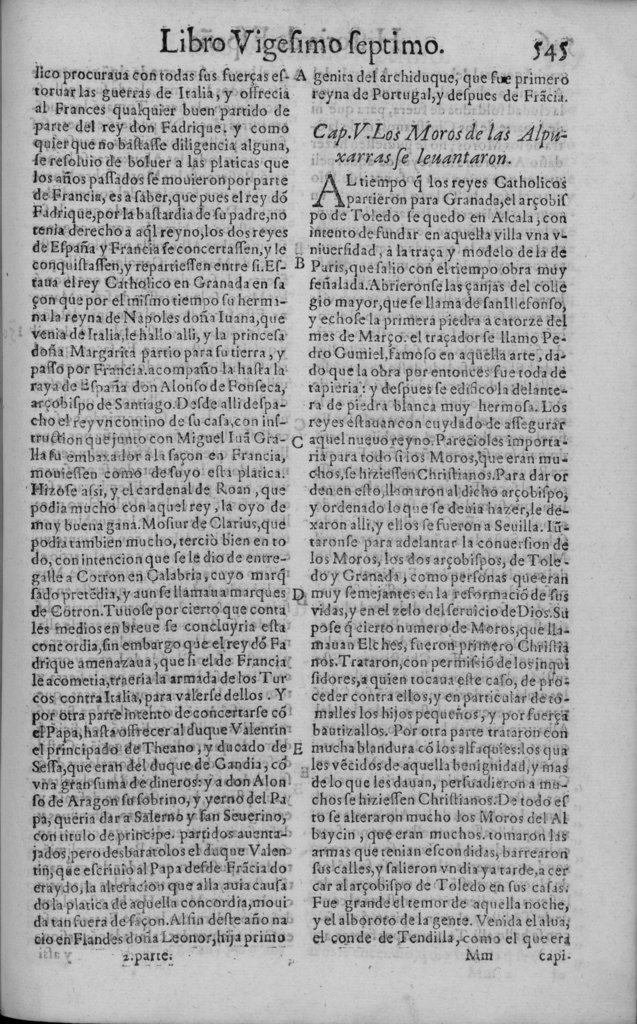 Libro Vigesimo septimo. 545
lico procuraua con todas sus fuerças es-
toruar las guerras de Italia, y offrecia
al Frances qualquier buen partido de
parte del rey don Fadrique, y como
quier que no bastasse diligencia alguna,
se resoluio de boluer a las platicas que
los años passados se mouieron por parte
de Francia, es a saber, que pues el rey dõ
Fadrique, por la bastardia de su padre, no
tenia derecho a aq̃l reyno, los dos reyes
de España y Francia se concertassen, y le
conquistassen, y repartiessen entre si. Es-
taua el rey Catholico en Granada en sa
çon que por el mismo tiempo su herma-
na la reyna de Napoles doña Iuana, que
venia de Italia, le hallo alli, y la princesa
doña Margarita partio para su tierra, y
passo por Francia. acompaño la hasta la
raya de España don Alonso de Fonseca,
arçobispo de Santiago. Desde alli despa-
cho el rey vn contino de su casa, con ins-
truction que junto con Miguel Iuã Gra-
lla su embaxador a la saçon en Francia,
mouiessen como de suyo esta platica.
Hizose assi, y el cardenal de Roan, que
podia mucho con aquel rey, la oyo de
muy buena gana. Mosiur de Clarius, que
podia tambien mucho, terciò bien en to
do, con intencion que se le dio de entre-
galle a Cotron en Calabria, cuyo marq̃
sado pretẽdia, y aun se llamaua marques
de Cotron. Tuuose por cierto que con ta
les medios en breue se concluyria esta
concordia, sin embargo que el rey dõ Fa
drique amenazaua, que si el de Francia
le acometia, traeria la armada de los Tur
cos contra Italia, para valerse dellos. Y
por otra parte intento de concertarse cõ
el Papa, hasta offrecer al duque Valentin
el principado de Theano, y ducado de
Sessa, que eran del duque de Gandia, cõ
vna gran suma de dineros: y a don Alon
so de Aragon su sobrino, y yerno del Pa
pa, queria dar a Salerno y san Seuerino,
con titulo de principe. partidos auenta-
jados, pero desbaratolos el duque Valen-
tin, que escriuiò al Papa desde Frãcia do
era ydo, la alteracion que alla auia causa
do la platica de aquella concordia, moui
da tan fuera de saçon. Al fin deste año na
cio en Flandes doña Leonor, hija primo
2. parte.
A
B
C
D
E
genita del archiduque, que fue primero
reyna de Portugal, y despues de Frãcia.
Cap. V. Los Moros de las Alpu-
xarras se leuantaron.
AL tiempo q̃ los reyes Catholicos
partieron para Granada, el arçobis
po de Toledo se quedo en Alcala, con
intento de fundar en aquella villa vna v-
niuersidad, a la traça y modelo de la de
Paris, que salio con el tiempo obra muy
señalada. Abrieronse las çanjas del colle
gio mayor, que se llama de san Illefonso,
y echose la primera piedra a catorze del
mes de Março. el traçador se llamo Pe-
dro Gumiel, famoso en aquella arte, da-
do que la obra por entonces fue toda de
tapieria: y despues se edifico la delante-
ra de piedra blanca muy hermosa. Los
reyes estauan con cuydado de assegurar
aquel nueuo reyno. Parecioles importa-
ria para todo si los Moros, que eran mu-
chos, se hiziessen Christianos. Para dar or
den en esto, llamaron al dicho arçobispo,
y ordenado lo que se deuia hazer, le de-
xaron alli, y ellos se fueron a Seuilla. Iũ-
taronse para adelantar la conuersion de
los Moros, los dos arçobispos, de Tole-
do y Granada, como personas que eran
muy semejantes en la reformaciõ de sus
vidas, y en el zelo del seruicio de Dios. Su
pose q̃ cierto numero de Moros, que lla-
mauan Elches, fueron primero Christia
nos. Trataron, con permissiõ de los inqui
sidores, a quien tocaua este caso, de pro-
ceder contra ellos, y en particular de to-
malles los hijos pequeños, y por fuerça
bautizallos. Por otra parte trataron con
mucha blandura cõ los alfaquies: los qua
les vẽcidos de aquella benignidad, y mas
de lo que les dauan, persuadieron a mu-
chos se hiziessen Christianos. De todo es
to se alteraron mucho los Moros del Al
baycin, que eran muchos. tomaron las
armas que tenian escondidas, barrearon
sus calles, y salieron vn dia ya tarde, a cer
car al arçobispo de Toledo en sus casas.
Fue grande el temor de aquella noche,
y el alboroto de la gente. Venida el alua,
el conde de Tendilla, como el que era
Mm capi-